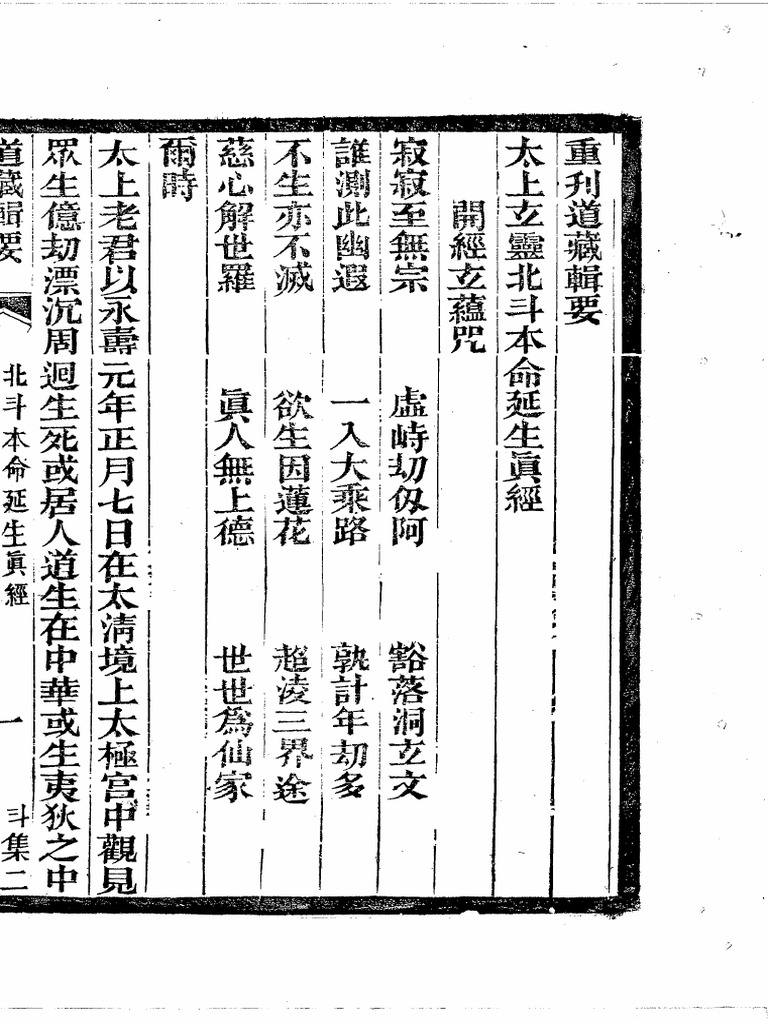 重刊道藏輯要
太上玄靈北斗本命延生眞經
開經玄蘊咒
寂寂至無宗　虛峙劫仭阿　豁落洞玄文
誰測此幽遐　一入大乘路　孰計年劫多
不生亦不滅　欲生因蓮花　超凌三界途
慈心解世羅　眞人無上德　世世爲仙家
爾時
太上老君以永壽元年正月七日在太淸境上太極宮中觀見
眾生億劫漂沉周迴生死或居人道生在中華或生夷狄之中
道藏輯要　北斗本命延生眞經　一　斗集二